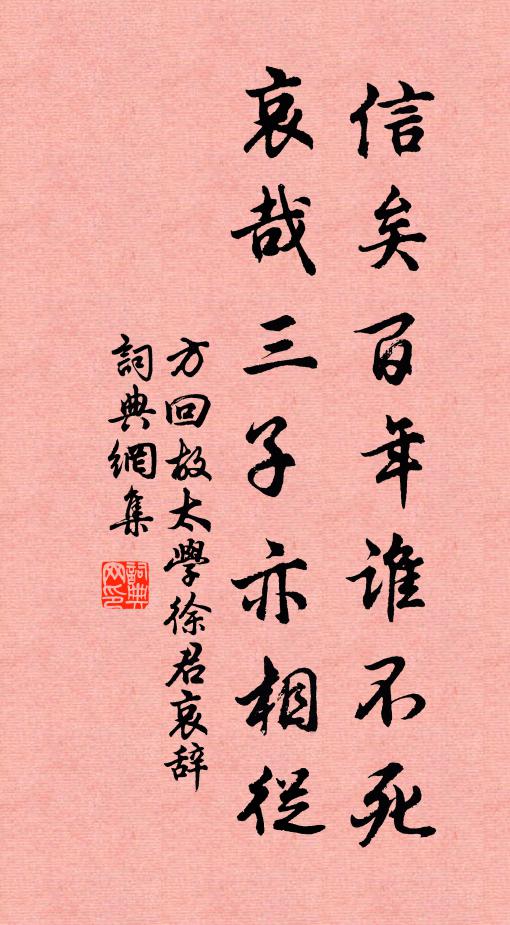 信矣百年誰不死
哀哉三子亦相從
方回故太學徐君哀辞
詞典網集
詞典网印